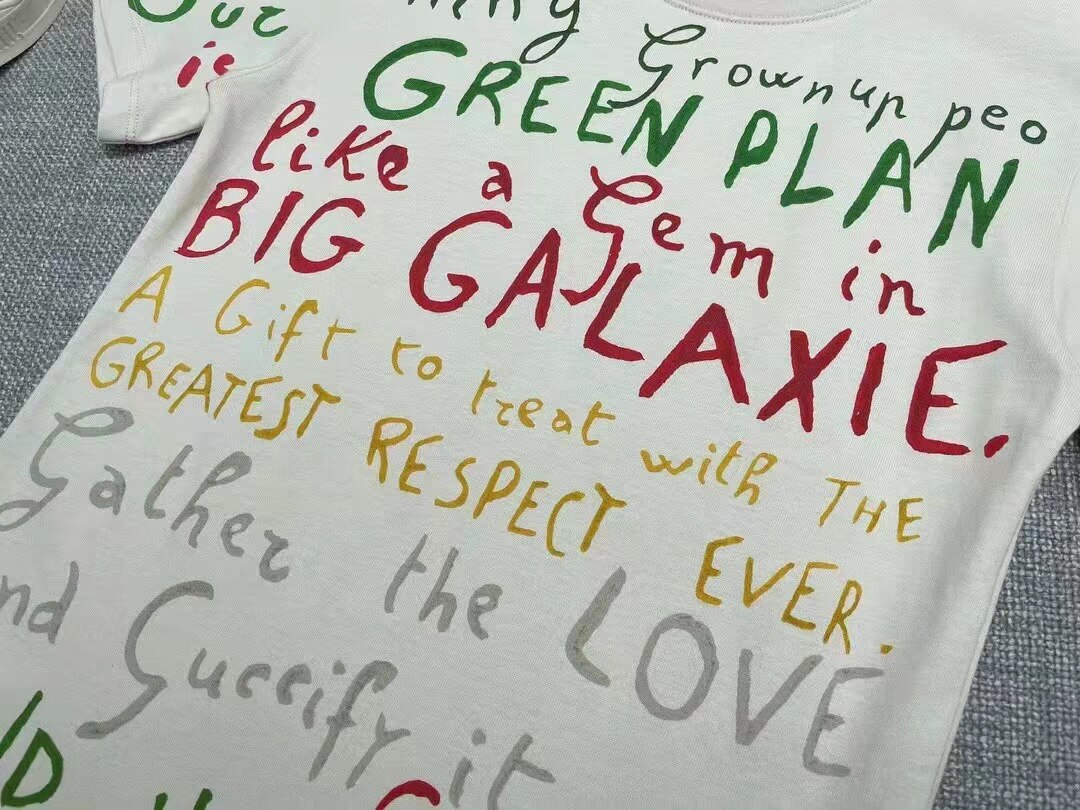 Our
is
Grownup peo
GREEN PLAN
like a Gem in
BIG GALAXIE.
A Gift to treat with THE
GREATEST RESPECT EVER.
Gather the LOVE
nd Guccify it